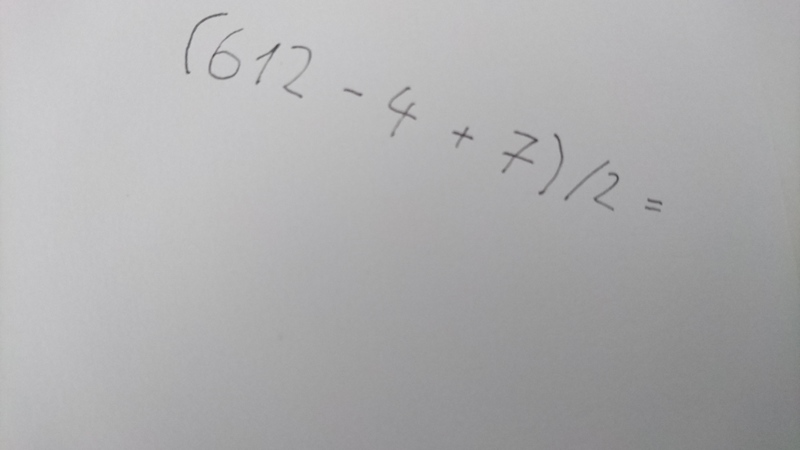 (612 - 4 + 7)/2 =